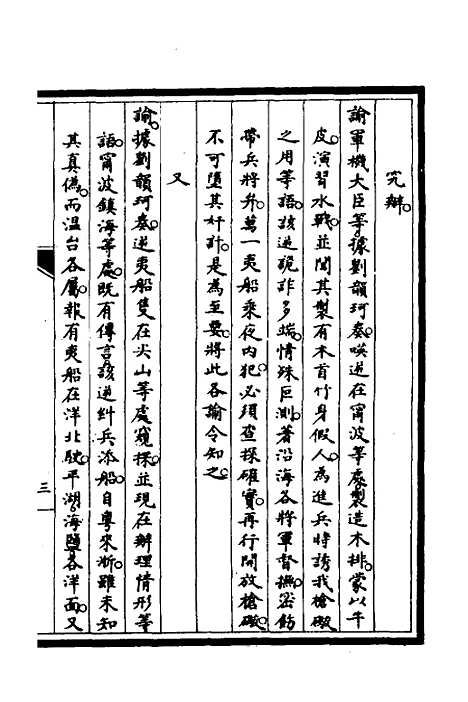 究辦。
諭軍機大臣等。據劉韻珂奏。㗸逆在甯波等處。製造木排。蒙以牛
皮。演習水戰。並聞其製有木首竹身假人。為進兵時誘我槍礮
之用等語。該逆詭詐多端。情殊叵測。著沿海各將軍督撫。密飭
帶兵將弁。萬一夷船乘夜內犯。必須查探確實。再行開放槍礮。
不可墮其奸計。是為至要。將此各諭令知之。
又
諭。據劉韻珂奏。逆夷船隻在尖山等處窺探。並現在辦理情形等
語。甯波鎮海等處。既有傳言。該逆糾兵添船。自粵來浙。雖未知
其真偽。而溫台各屬。報有夷船在洋北駛。平湖。海鹽各洋面。又
三